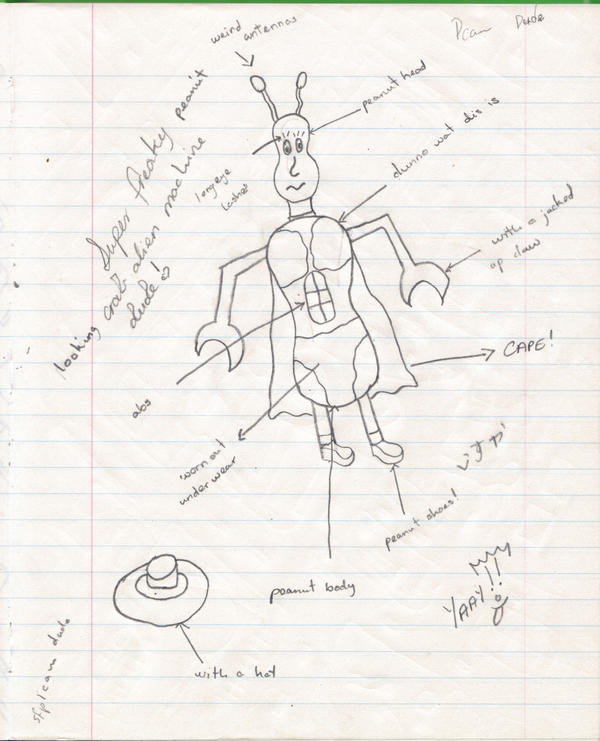 weird antennas
Dude
peanut head
Super freaky peanut
looking crab alien machine
dude!
long eye
lashes
dunno wat dis is
with a jacked
up claw
CAPE!
abs
worn out
under wear
peanut shoes!
peanut body
YAAY!!!
with a hat
dude